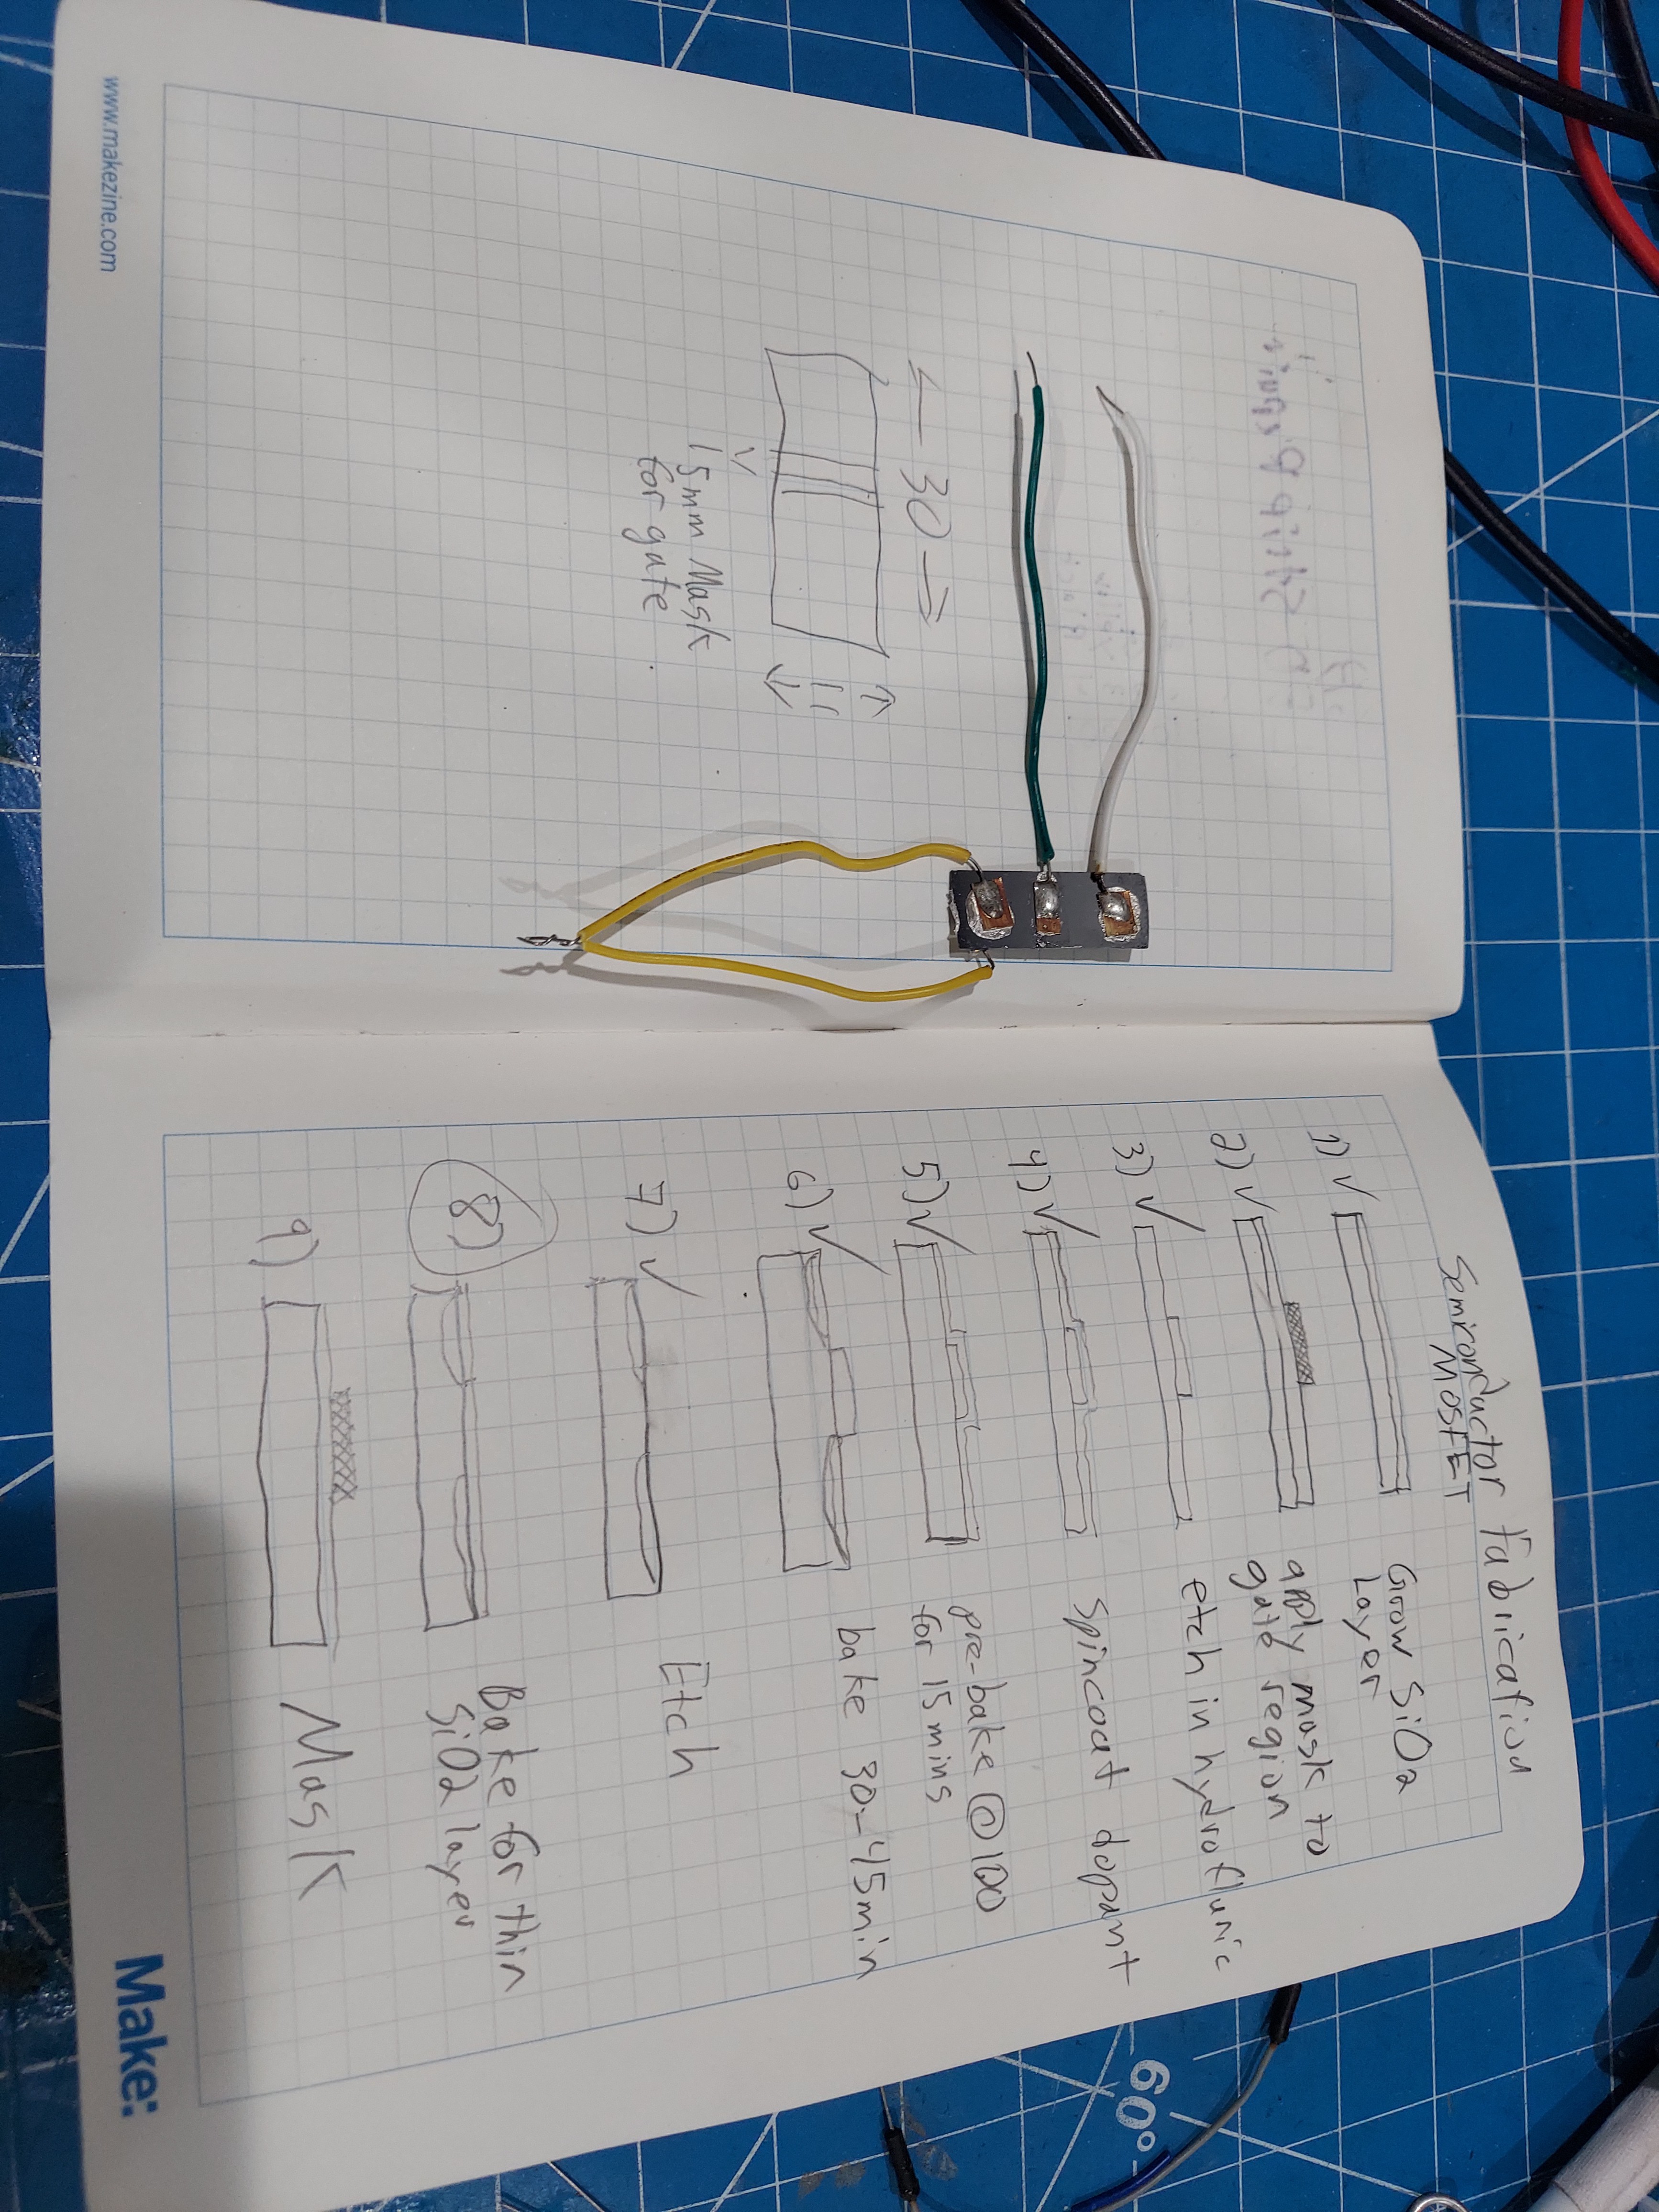 ← 30 →
11
15mm Mask
for gate
www.makezine.com
Semiconductor Fabrication
MOSFET
1) ✓ Grow SiO2
Layer
2) ✓ apply mask to
gate region
3) ✓ etch in hydrofluric
4) ✓ Spincoat dopant
5) ✓ pre-bake @100
for 15 mins
6) ✓ bake 30-45min
7) ✓ Etch
8) Bake for thin
SiO2 layer
9) Mask
Make:
60°